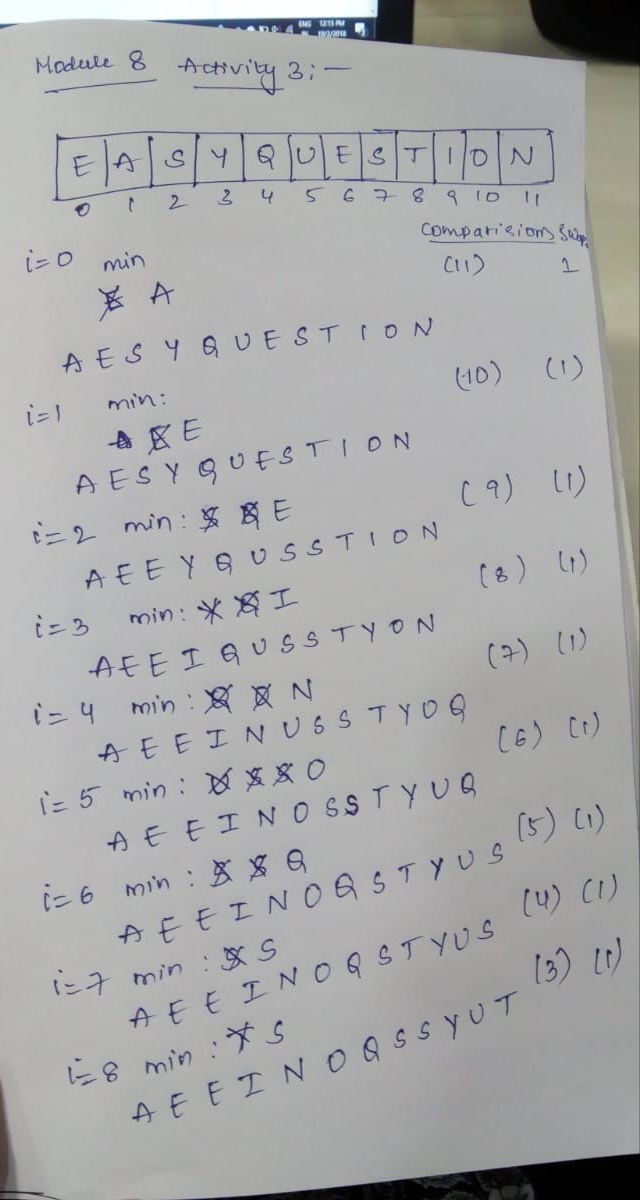 ENG 12:15 PM
10/2/2018
Module 8 Activity 3:-
E A S Y Q U E S T I O N
0 1 2 3 4 5 6 7 8 9 10 11
Comparisions Swaps
i=0 min (11) 1
E A
A E S Y Q U E S T I O N
i=1 min: (10) (1)
A E E
A E S Y Q U E S T I O N
i=2 min: S Q E (9) (1)
A E E Y Q U S S T I O N
i=3 min: Y Q I (8) (1)
A E E I Q U S S T Y O N
i=4 min: Q O N (7) (1)
A E E I N U S S T Y O Q
i=5 min: U S S O (6) (1)
A E E I N O S S T Y U Q
i=6 min: S S Q (5) (1)
A E E I N O Q S T Y U S
i=7 min: S S (4) (1)
A E E I N O Q S T Y U S
i=8 min: T S (3) (1)
A E E I N O Q S S Y U T